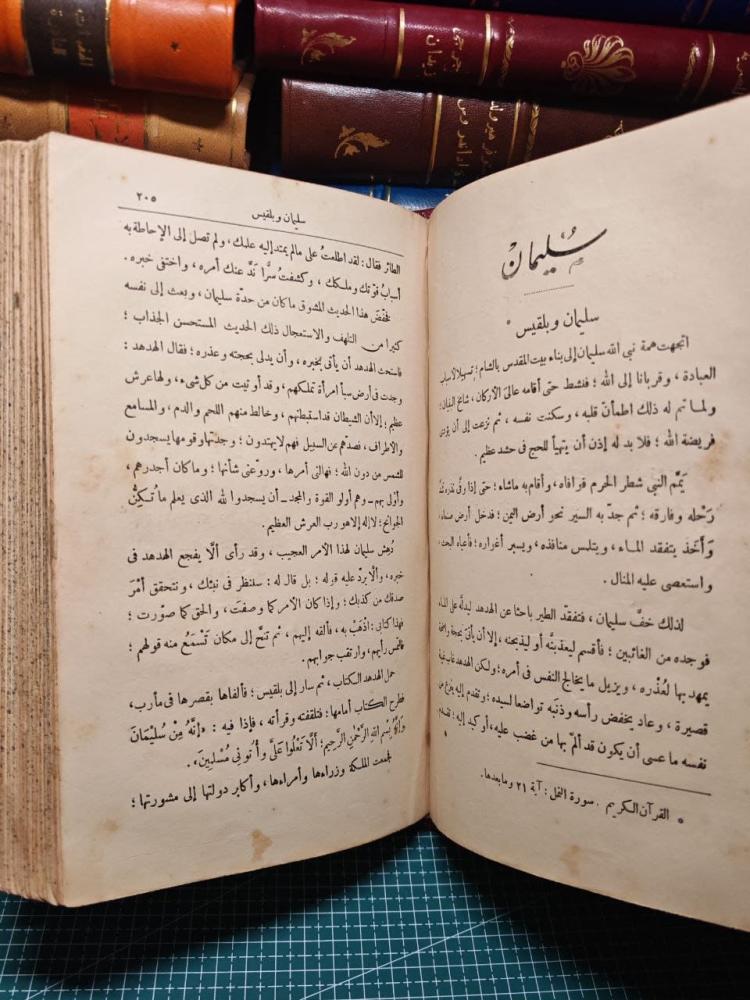 جرجي
زيدان
سليمان
سليمان وبلقيس *
اتجهت همة نبي الله سليمان إلى بناء بيت المقدس بالشام؛ تسهيلا لأسباب
العبادة، وقربانا إلى الله؛ فنشط حتى أقامه عالى الأركان، شامخ البنيان؛
ولما تم له ذلك اطمأن قلبه، وسكنت نفسه، ثم نزعت إلى أن يؤدى
فريضة الله؛ فلا بد له إذن أن يتهيأ للحج فى حشد عظيم.
يَمَّم النبي شطر الحرم فوافاه، وأقام به ماشاء؛ حتى إذا وفَّى نذره شدّ
رَحْله وفارقه؛ ثم جدّ به السير نحو أرض اليمن؛ فدخل أرض صنعاء،
وَأَخَذ يتفقد الماء، ويتلمس منافذه، ويسبر أغواره؛ فأعياه البحث،
واستعصى عليه المنال.
لذلك خفَّ سليمان، فتفقّد الطير باحثا عن الهدهد ليدلّه على الماء
فوجده من الغائبين؛ فأقسم ليعذبنَّه أو ليذبحنه، إلا أن يأتى بحجة واضحة
يمهد بها لعُذْره، ويزيل ما يخالج النفس فى أمره؛ ولكن الهدهد غاب غيبة
قصيرة، وعاد يخفض رأسه وذنَبه تواضعا لسيده؛ وتقدم إليه ينزع من
نفسه ما عسى أن يكون قد ألمّ بها من غضب عليه، أو كيد إليه؛
* القرآن الكريم. سورة النمل: آية ٢١ وما بعدها.
سليمان وبلقيس
٢٠٥
الطائر فقال: لقد اطلعتُ على مالم يمتد إليه علمك، ولم تصل إلى الإحاطة به
أسبابُ قوّتك وملكك، وكشفتُ سرًّا نَدَّ عنك أمره، واختفى خبره.
فخفّض هذا الحديث المشوق ما كان من حدّة سليمان، وبعث إلى نفسه
كثيرا من التلهف والاستعجال ذلك الحديث المستحسن الجذاب؛
فاستحث الهدهد أن يأتى بخبره، وأن يدلى بحجته وعذره؛ فقال الهدهد:
وجدت فى أرض سبأ امرأة تملكهم، وقد أوتيت من كل شىء، ولها عرش
عظيم؛ إلا أن الشيطان قد استبطنهم، وخالط منهم اللحم والدم، والمسامع
والأطراف، فصدّهم عن السبيل فهم لا يهتدون؛ وجدتها وقومها يسجدون
للشمس من دون الله؛ فهالنى أمرها، وروّعنى شأنها؛ وما كان أجدرهم،
وأوْلى بهم ـ وهم أولو القوة والمجد ـ أن يسجدوا لله الذى يعلم ما تُـكِنُّ
الجوانح؛ لا إله إلا هو رب العرش العظيم.
دُهِش سليمان لهذا الأمر العجيب، وقد رأى ألّا يفجع الهدهد فى
خبره، وألّا يردّ عليه قوله؛ بل قال له: سننظر فى نبئك، ونتحقق أمْرَ
صدقك من كذبك؛ وإذا كان الأمر كما وصفتَ، والحق كما صوّرت؛
فهذا كتابى: اذهَبْ به، فألقه إليهم، ثم تنحّ إلى مكان تَسْمَعُ منه قولهم؛
رأيهم، وارتقب جوابهم.
حمل الهدهد الكتاب، ثم سار إلى بلقيس؛ فألفاها بقصرها فى مأرب،
فطرح الكتاب أمامها: فتلقفته وقرأته، فإذا فيه: «إِنَّهُ مِنْ سُلَيْمَانَ
وَإِنَّهُ بِسْمِ اللهِ الرَّحْمٰنِ الرَّحِيمِ؛ أَلَّا تَعْلُوا عَلَىَّ وَأْتُونِى مُسْلِمِينَ».
فجمعت الملكة وزراءها وأمراءها، وأكابر دولتها إلى مشورتها؛